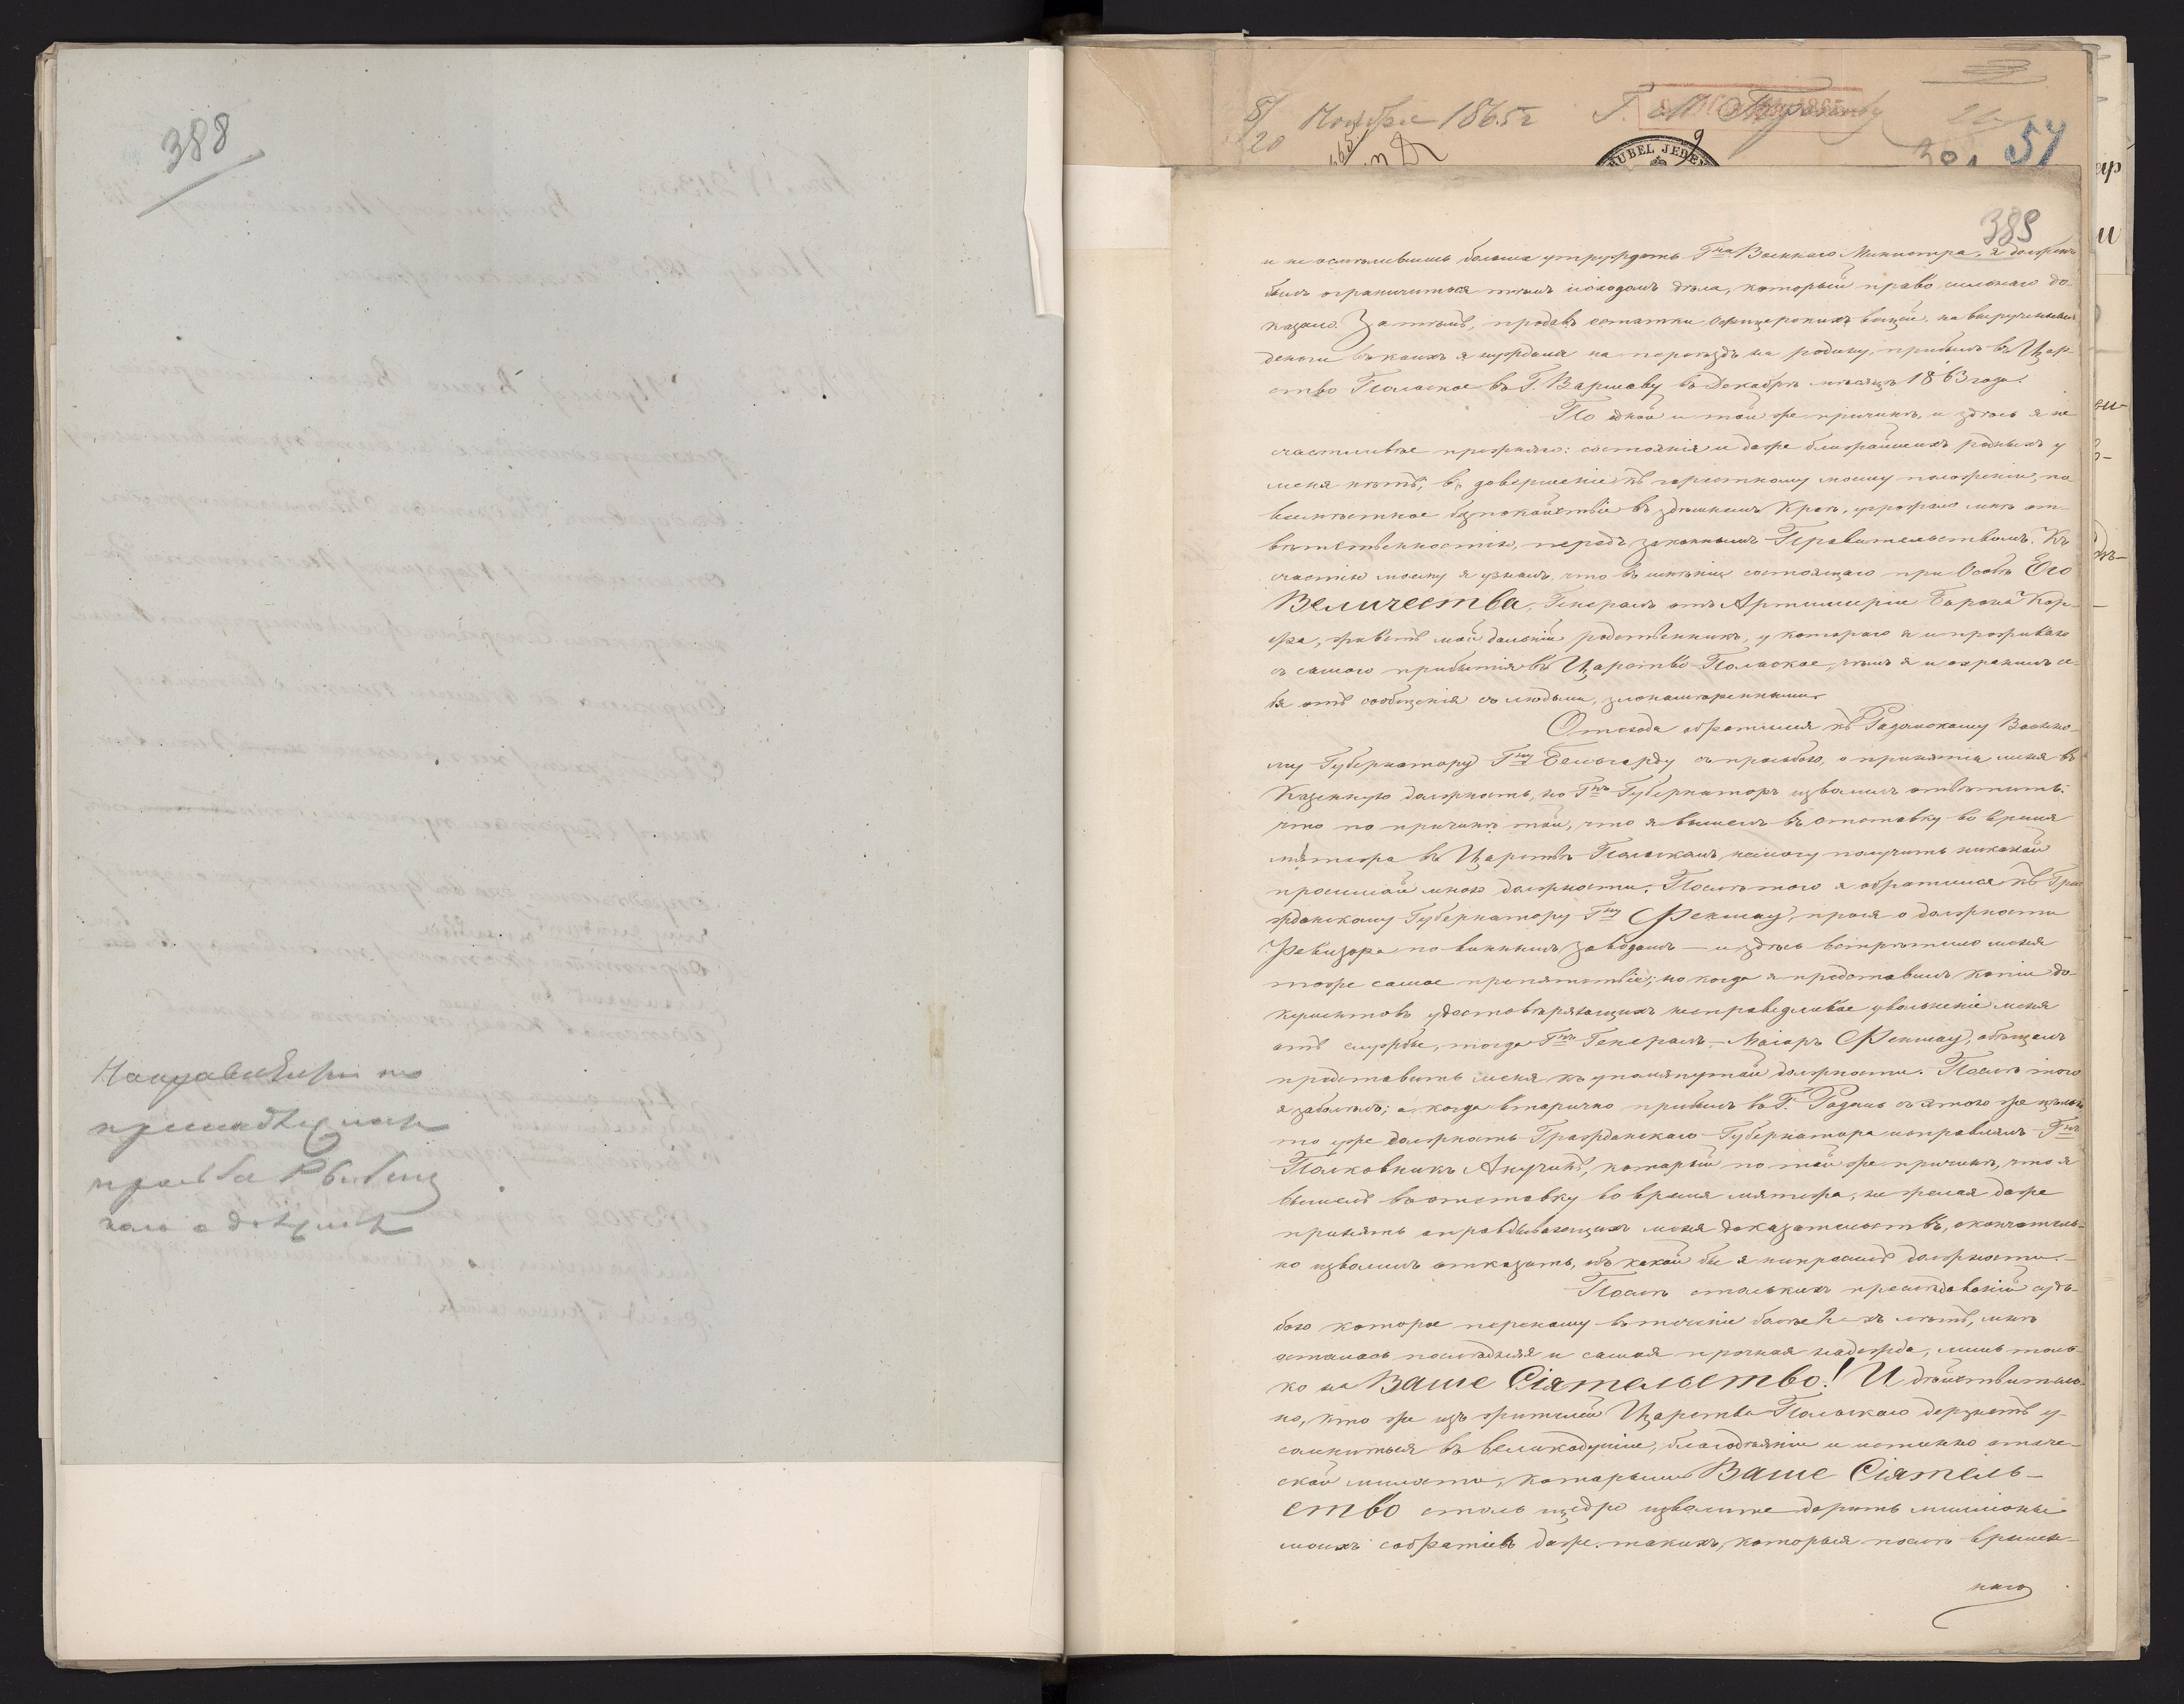 388
Направленъ по
принадлежности
просьба
8/20 Ноября 1865 г
RUBEL JEDEN
57
389
и не осмѣлившись больше утруждать Г-на Военнаго Министра, я долженъ
былъ ограничиться тѣмъ исходомъ дѣла, который право сильнаго до-
казало. Затѣмъ, продавъ остатки офицерскихъ вещей, на вырученныя
деньги въ коихъ я нуждался на переѣздъ на родину, прибылъ въ Цар-
ство Польское въ Г. Варшаву въ Декабрѣ мѣсяцѣ 1863 года.
По одной и той же причинѣ, и здѣсь я не
счастливѣе прежняго: состоянія и даже ближайшихъ родныхъ у
меня нѣтъ, въ довершеніе къ горестному моему положенію, по-
всемѣстное безпокойствіе въ здѣшнемъ Краѣ, угрожало мнѣ от-
вѣтственностію, передъ законнымъ Правительствомъ. Къ
счастію моему я узналъ, что въ имѣніи состоящаго при Особѣ Его
Величества, Генерала отъ Артиллеріи Барона Кор-
фа, живетъ мой дальній родственникъ, у котораго я и проживаю
съ самаго прибытія въ Царство Польское, чѣмъ я и охранилъ се-
бя отъ сообщенія съ людьми, злонамѣренными.
Отсюда обратился къ Радомскому Военно-
му Губернатору Г-ну Бельгарду съ просьбою, о принятіи меня въ
Казенную должность, но Г-нъ Губернаторъ изволилъ отвѣтить:
что по причинѣ той, что я вышелъ въ отставку во время
мятежа въ Царствѣ Польскомъ, немогу получить никакой
просимой мною должности. Послѣ того я обратился къ Граж-
жданскому Губернатору Г-ну Феншау, прося о должности
Ревизора по виннымъ заводамъ — и здѣсь встрѣтило меня
тоже самое препятствіе; но когда я представилъ копіи до-
кументовъ удостовѣряющихъ несправедливое увольненіе меня
отъ службы, тогда Г-нъ Генералъ-Маіоръ Феншау, обѣщалъ
представить меня къ упомянутой должности. Послѣ того
я заболѣлъ; а когда вторично прибылъ въ Г. Радомъ съ этою же цѣлью
то уже должность Гражданскаго Губернатора исправлялъ Г-нъ
Полковникъ Анучинъ, который по той же причинѣ, что я
вышелъ въ отставку во время мятежа, не желая даже
принять оправдывающихъ меня доказательствъ, окончатель-
но изволилъ отказать, объ какой бы я ни просилъ должности.
Послѣ столькихъ преслѣдованій судь-
бою которое переношу въ теченіе болѣе 2-хъ лѣтъ, мнѣ
осталась послѣдняя и самая прочная надежда, лишь толь-
ко на Ваше Сіятельство! И дѣйствитель-
но, кто же изъ жителей Царства Польскаго дерзнетъ у-
сомниться въ великодушіи, благодѣяніи и истинно отече-
ской милости, которыми Ваше Сіятель-
ство столь щедро изволите дарить милліоны
моихъ собратіевъ даже такихъ, которые послѣ времен-
наго